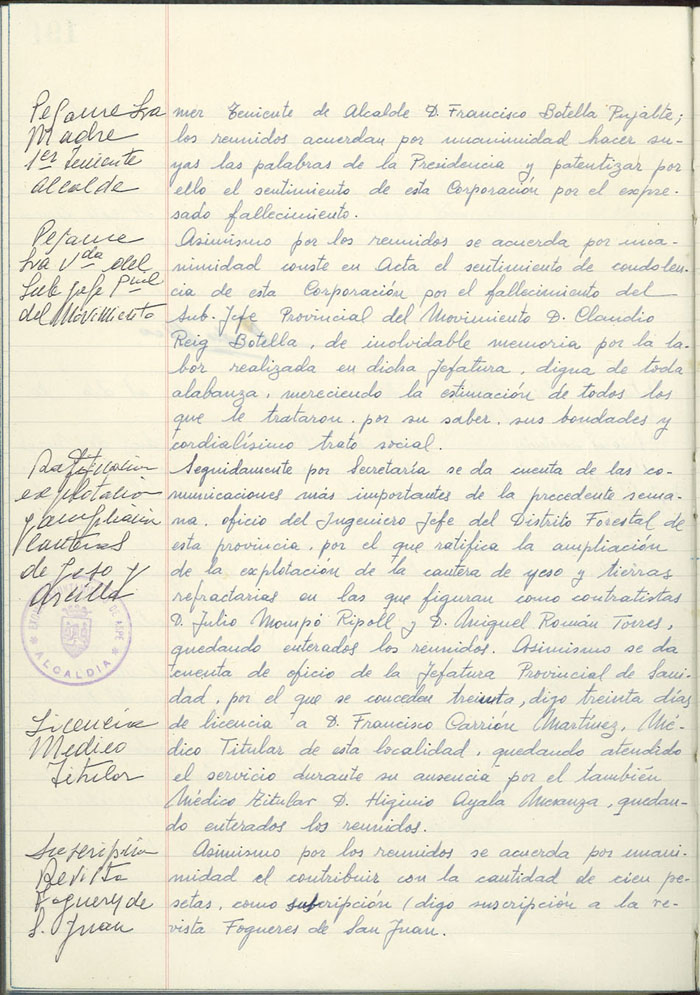 Pesame Sra
Madre
1er Teniente
Alcalde
mer Teniente de Alcalde D. Francisco Botella Pujalte;
los reunidos acuerdan por unanimidad hacer su-
yas las palabras de la Presidencia y patentizar por
ello el sentimiento de esta Corporación por el expre-
sado fallecimiento.
Pesame
Sra Vda del
Sub jefe Pral
del Movimiento
Asimismo por los reunidos se acuerda por una-
nimidad conste en Acta el sentimiento de condolen-
cia de esta Corporación por el fallecimiento del
Sub-Jefe Provincial del Movimiento D. Claudio
Reig Botella, de inolvidable memoria por la la-
bor realizada en dicha Jefatura, digna de toda
alabanza, mereciendo la estimación de todos los
que le trataron, por su saber, sus bondades y
cordialísimo trato social.
Ratificación
explotación
y ampliación
canteras
de Yeso y
Arcilla
Seguidamente por Secretaría se da cuenta de las co-
municaciones más importantes de la precedente sema-
na, oficio del Ingeniero Jefe del Distrito Forestal de
esta provincia, por el que ratifica la ampliación
de la explotación de la cantera de yeso y tierras
refractarias en las que figuran como contratistas
D. Julio Mompó Ripoll y D. Miguel Román Torres,
quedando enterados los reunidos. Asimismo se da
cuenta de oficio de la Jefatura Provincial de Sani-
dad, por el que se conceden treinta, digo treinta días
de licencia a D. Francisco Carrión Martínez, Mé-
dico Titular de esta localidad, quedando atendido
el servicio durante su ausencia por el también
Médico Titular D. Higinio Ayala, quedan-
do enterados los reunidos.
ALCALDIA
Licencia
Medico
Titular
Suscripción
Revista
Fogueres de
S. Juan
Asimismo por los reunidos se acuerda por unani-
midad el contribuir con la cantidad de cien pe-
setas, como suscripción (digo suscripción a la re-
vista Fogueres de San Juan.